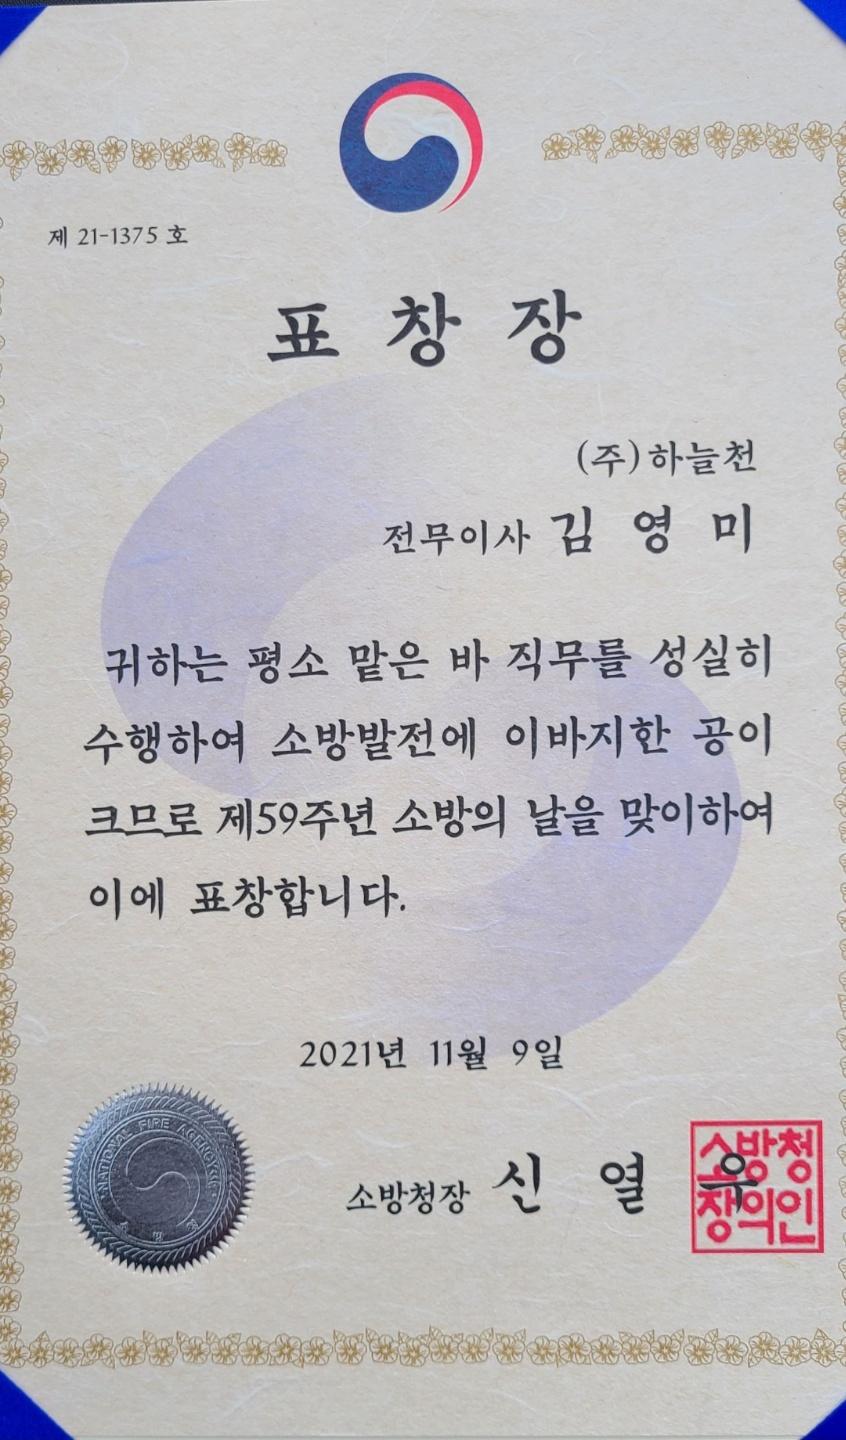 제 21-1375 호
표 창 장
(주)하늘천
전무이사 김 영 미
귀하는 평소 맡은 바 직무를 성실히
수행하여 소방발전에 이바지한 공이
크므로 제59주년 소방의 날을 맞이하여
이에 표창합니다.
2021년 11월 9일
소방청장 신 열 우
소방청
장의인
NATIONAL FIRE AGENCY